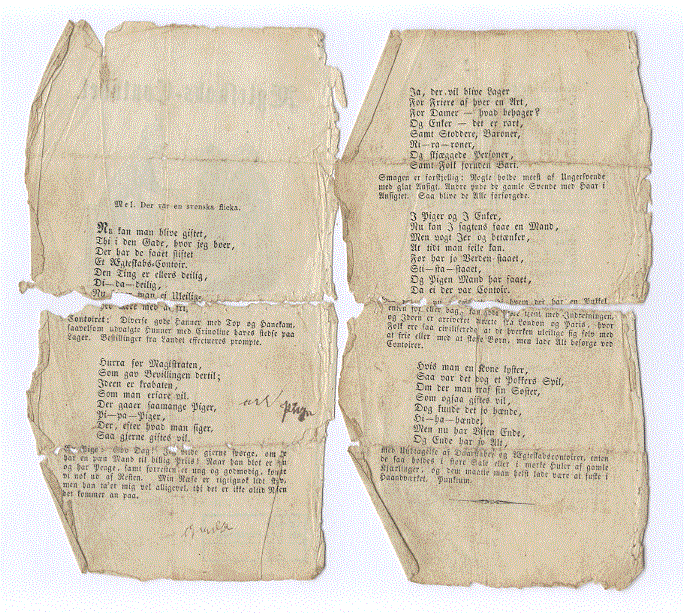 Mel. Der var en svenska flicka.
Nu kan man blive giftet,
Thi i den Gade, hvor jeg boer,
Der har de faaet stiftet
Et Ægteskabs-Contoir.
Den Ting er ellers deilig,
Di—da—deilig,
man ei Uleilig
Contoiret: Diverse gode Hanner med Top og Hanekam,
saavelsom udvalgte Hunner med Crinoline haves stedse paa
Lager. Bestillinger fra Landet effectueres prompte.
Hurra for Magistraten,
Som gav Bevillingen dertil;
Ideen er krabaten,
Som man erfare vil.
Der gaaer saamange Piger,
Pi—pa—Piger,
Der, efter hvad man siger,
Saa gjerne giftes vil.
Pige: God Dag! vilde gjerne spørge, om
en paa Mand til billig Priis! Naar han blot er
og har Penge, samt forresten et ung og godmodig,
vi nok ud af Resten. Min Næse er rigtignok lidt
men han ta'er mig vel alligevel, thi det er ikke altid
det kommer an paa.
Ja, der vil blive Lager
For Friere af hver en Art,
For Damer — hvad behager?
Og Enker — det er rart,
Samt Stoddere, Baroner,
Ri—ra—roner,
Og skjæggede Personer,
Samt Folk foruden Bart.
Smagen er forskjellig: Nogle holde meest af Ungersvende
med glat Ansigt. Andre ynde de gamle Svende med Haar i
Ansigtet. Saa blive de Alle forsørgede.
I Piger og I Enker,
Nu kan I sagtens faae en Mand,
Men vogt Jer og betænker,
At tidt man feile kan.
For har jo Verden staaet,
Sti—sta—staaet,
Og Pigen Mand har faaet,
Da ei der var Contoir.
enten for eller bag, kan tjent med Indretningen,
og Ideen er arriveret directe fra London og Paris, hvor
Folk ere saa civiliserede at de hverken uleilige sig selv med
at frie eller med at skaffe Børn, men lade Alt besørge ved
Contoirer.
Hvis man en Kone lyster,
Saa var det dog et Pokkers Spil,
Om der man traf sin Søster,
Som ogsaa giftes vil,
Dog kunde det jo hænde,
Hi—ha—hænde,
Men nu har Visen Ende,
Og Ende har jo Alt,
med Undtagelse af Daarskaber og Ægteskabscontoirer, enten
de saa holdes i store Sale eller i mørke Huler af gamle
Kjællinger, og dem maatte man helst lade være at fuske i
Haandværket. Punktum.